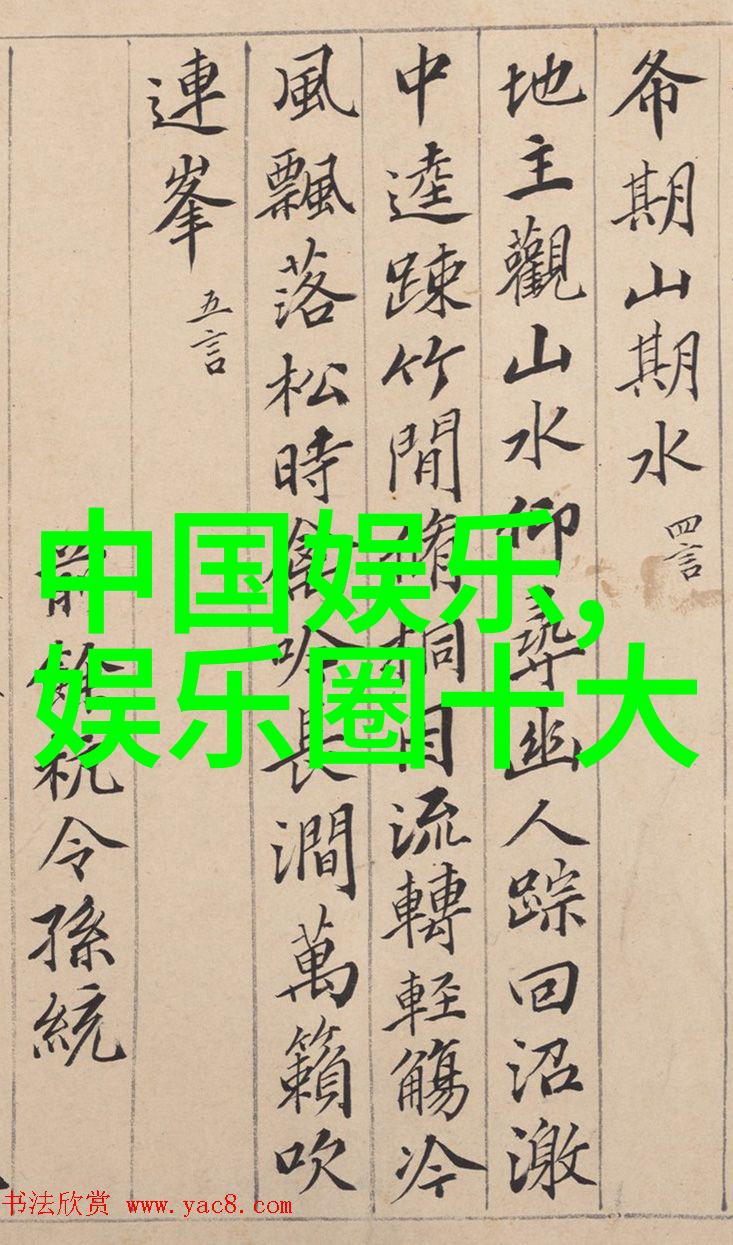 希期山期水 四言
地主觀山水仰尋幽人踪回沼激
中逵踈竹間脩桐因流轉軽觴冷
風飄落松時禽吟長澗萬籟吹
連峯 五言
前餘杭令孫統
中国娱乐,
娱乐圈十大
书法欣赏 www.yac8.com